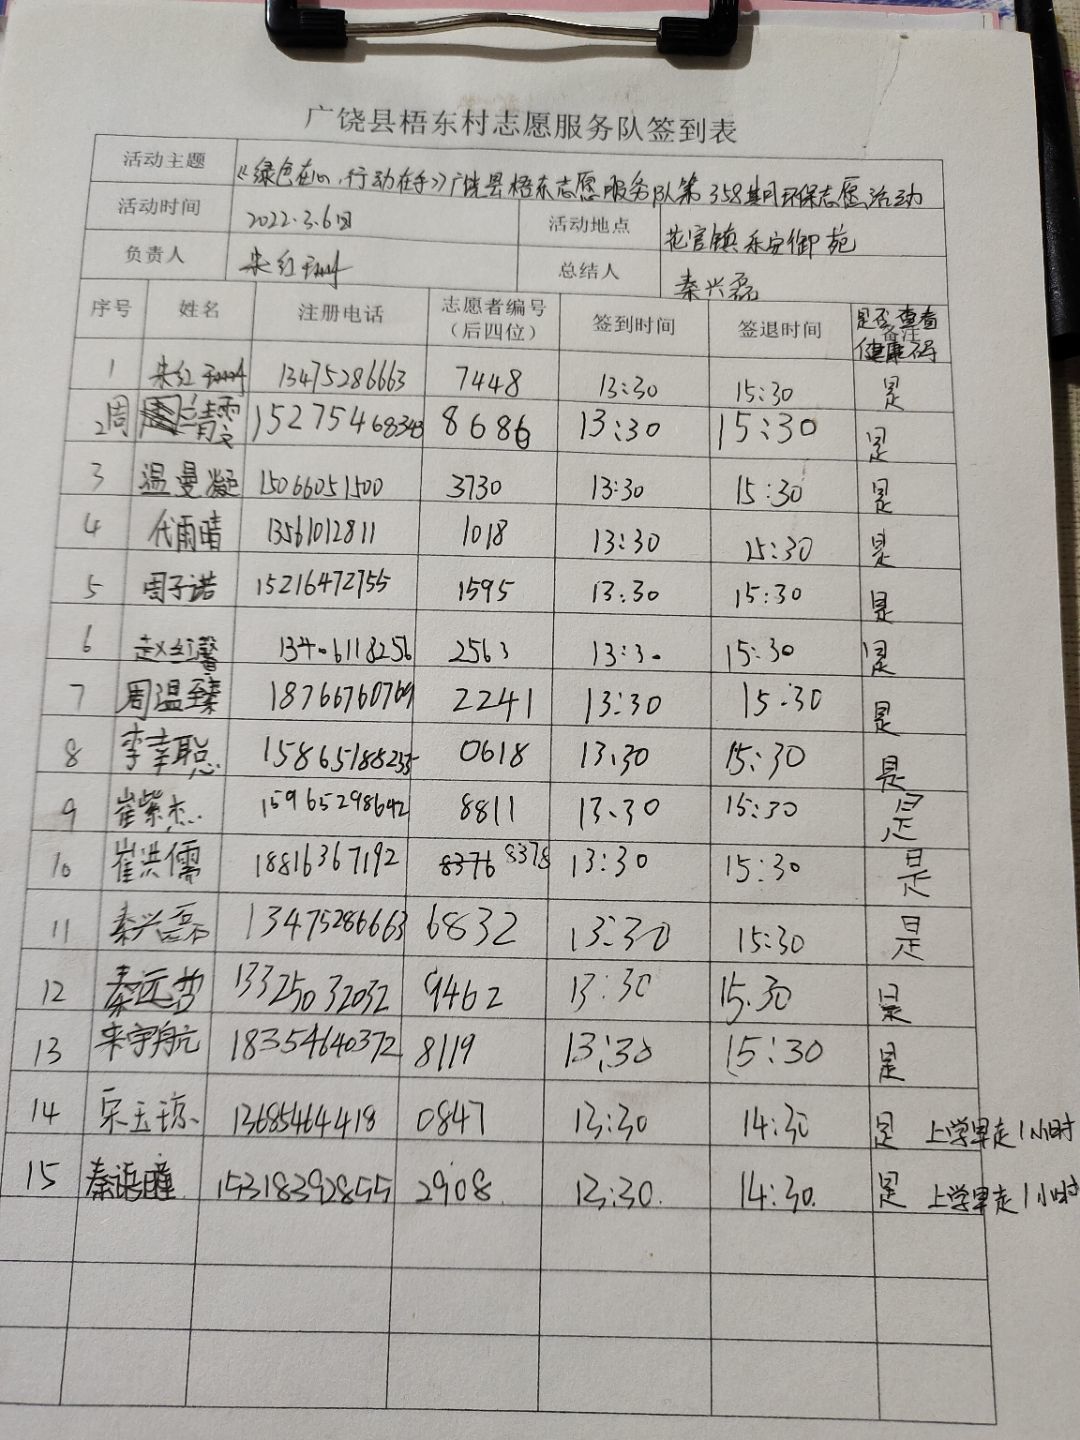 广饶县梧东村志愿服务队签到表
活动主题 《绿色在心,行动在手》广饶县梧东志愿服务队第358期环保志愿活动
活动时间 2022.3.6日 活动地点 花官镇乐安御苑
负责人 朱红 总结人 秦兴磊
序号 姓名 注册电话 志愿者编号(后四位) 签到时间 签退时间 备注 是否查看健康码
1 朱红 13475286663 7448 13:30 15:30 是
2 周兰清雯 15275468343 8686 13:30 15:30 是
3 温曼凝 15066051500 3730 13:30 15:30 是
4 代雨晴 13561012811 1018 13:30 15:30 是
5 周子诺 15216472755 1595 13:30 15:30 是
6 赵红馨 13406118256 2563 13:30 15:30 是
7 周温臻 18766760769 2241 13:30 15:30 是
8 李幸聪 15865188255 0618 13:30 15:30 是
9 崔紫杰 15965298642 8811 13:30 15:30 是
10 崔洪儒 18816367192 8376 8378 13:30 15:30 是
11 秦兴磊 13475286663 6832 13:30 15:30 是
12 秦远哲 13325032032 9462 13:30 15.30 是
13 宋宇航 18354640372 8119 13:30 15:30 是
14 宋玉琼 13685464418 0847 13:30 14:30 是 上学早走1小时
15 秦语瞳 15318392855 2908 13:30 14:30 是 上学早走1小时